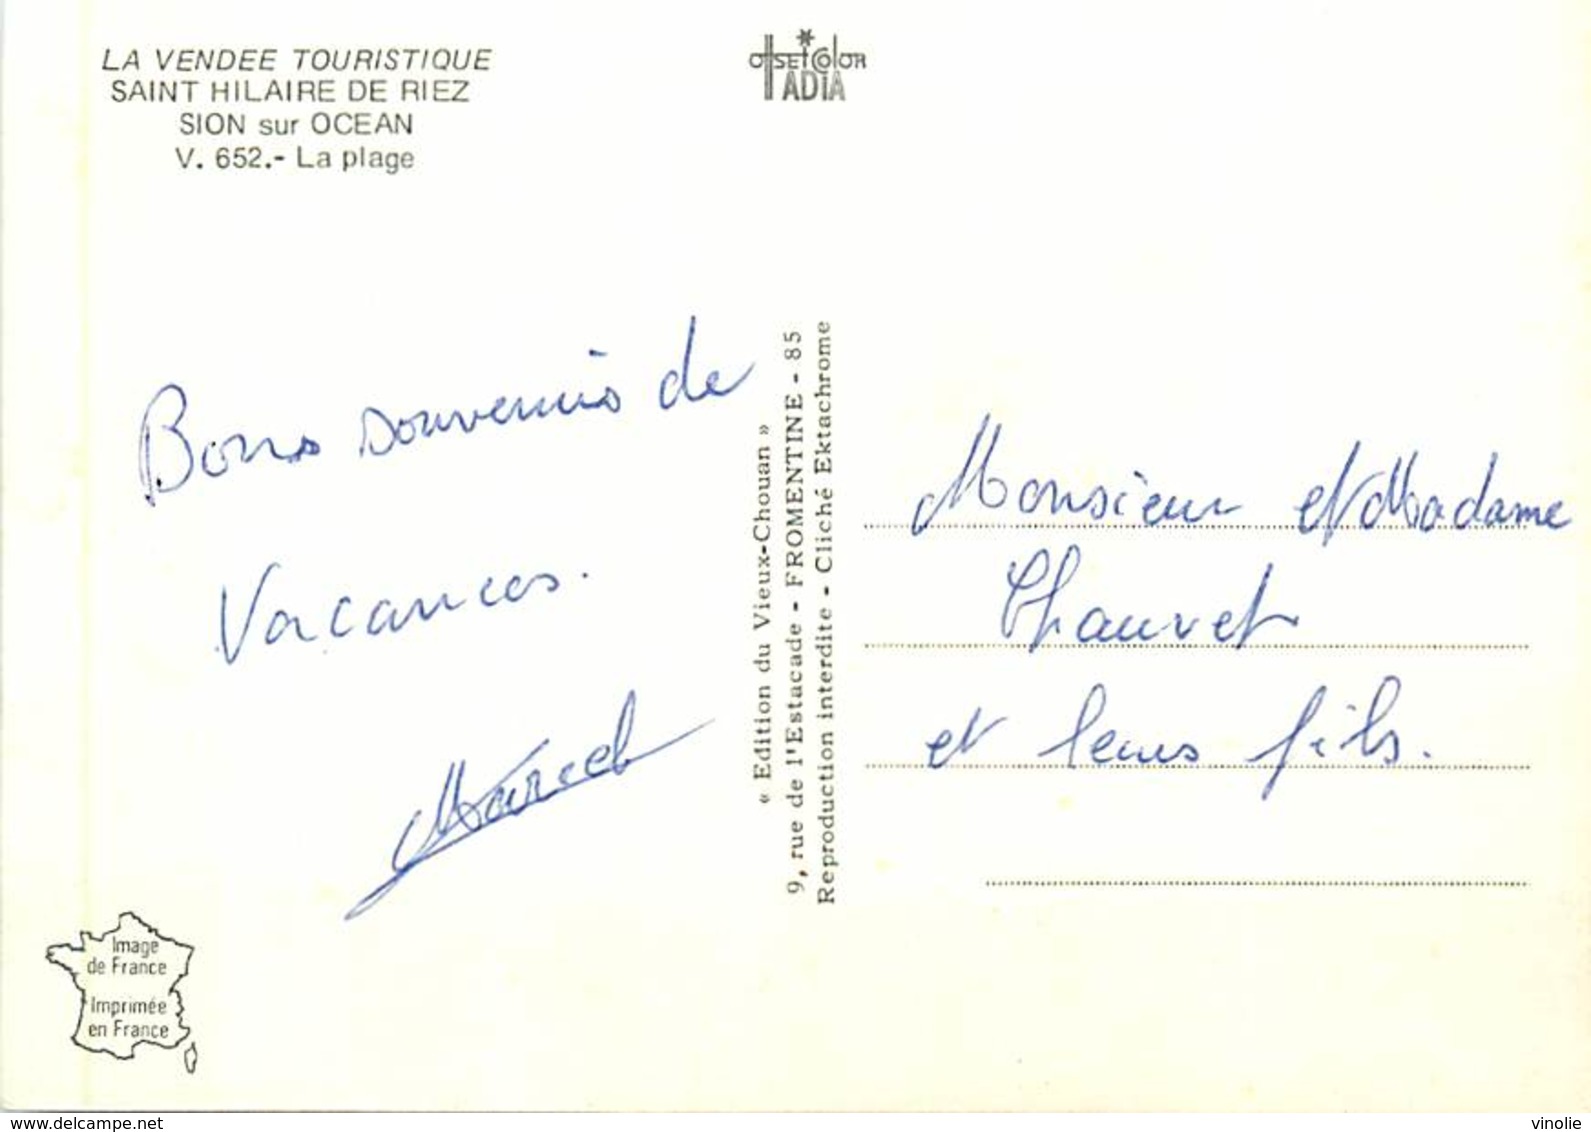 LA VENDEE TOURISTIQUE
SAINT HILAIRE DE RIEZ
SION sur OCEAN
V. 652.- La plage
OffSEt COlOR
IADIA
Bons souvenirs de
Vacances.
Marcel
Image
de France
Imprimée
en France
« Edition du Vieux-Chouan »
9, rue de l'Estacade - FROMENTINE - 85
Reproduction interdite - Cliché Ektachrome
Monsieur et Madame
Chauvet
et leurs fils.
www.delcampe.net
vinolie